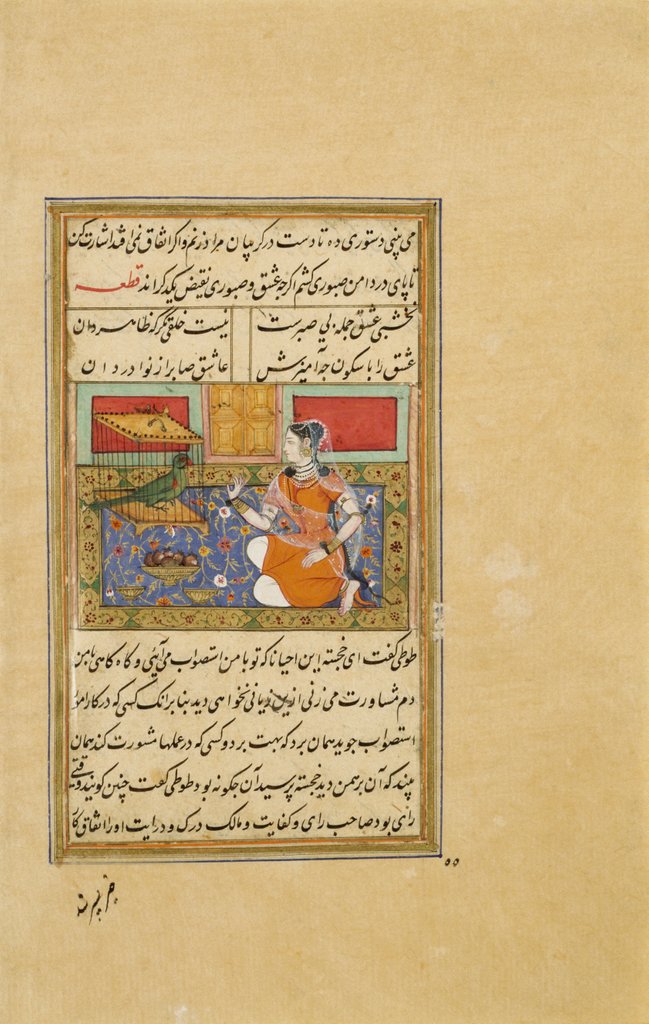 می بینی دستوری ده تا دست در کریبان مراد زنم و اکر اتفاق نمی افتد اشارت کن
تا پای در دامن صبوری کشم اکرچه عشق و صبوری نقیض یکدیکراند قطعه
نخشبی عشق جمله بی صبریست نیست خلقی نکر که ظاهر دان
عشق را با سکون چه آمیزش عاشق صابر از نوادر دان
طوطی کفت ای خجسته این احیانا که تو با من استصواب می آیی و کاه کاهی با من
دم مشاورت می زنی ازین زیانی نخواهی دید بنابرانک کسی که در کارها
استصواب جوید همان برد که بهت برد و کسی که در عملها مشورت کند همان
بیند که آن برهمن دید خجسته پرسید آن چکونه بود طوطی کفت چنین کویند وقتی
رای بود صاحب رای و کفایت و مالک درک و درایت او را اتفاق کار
۵۵